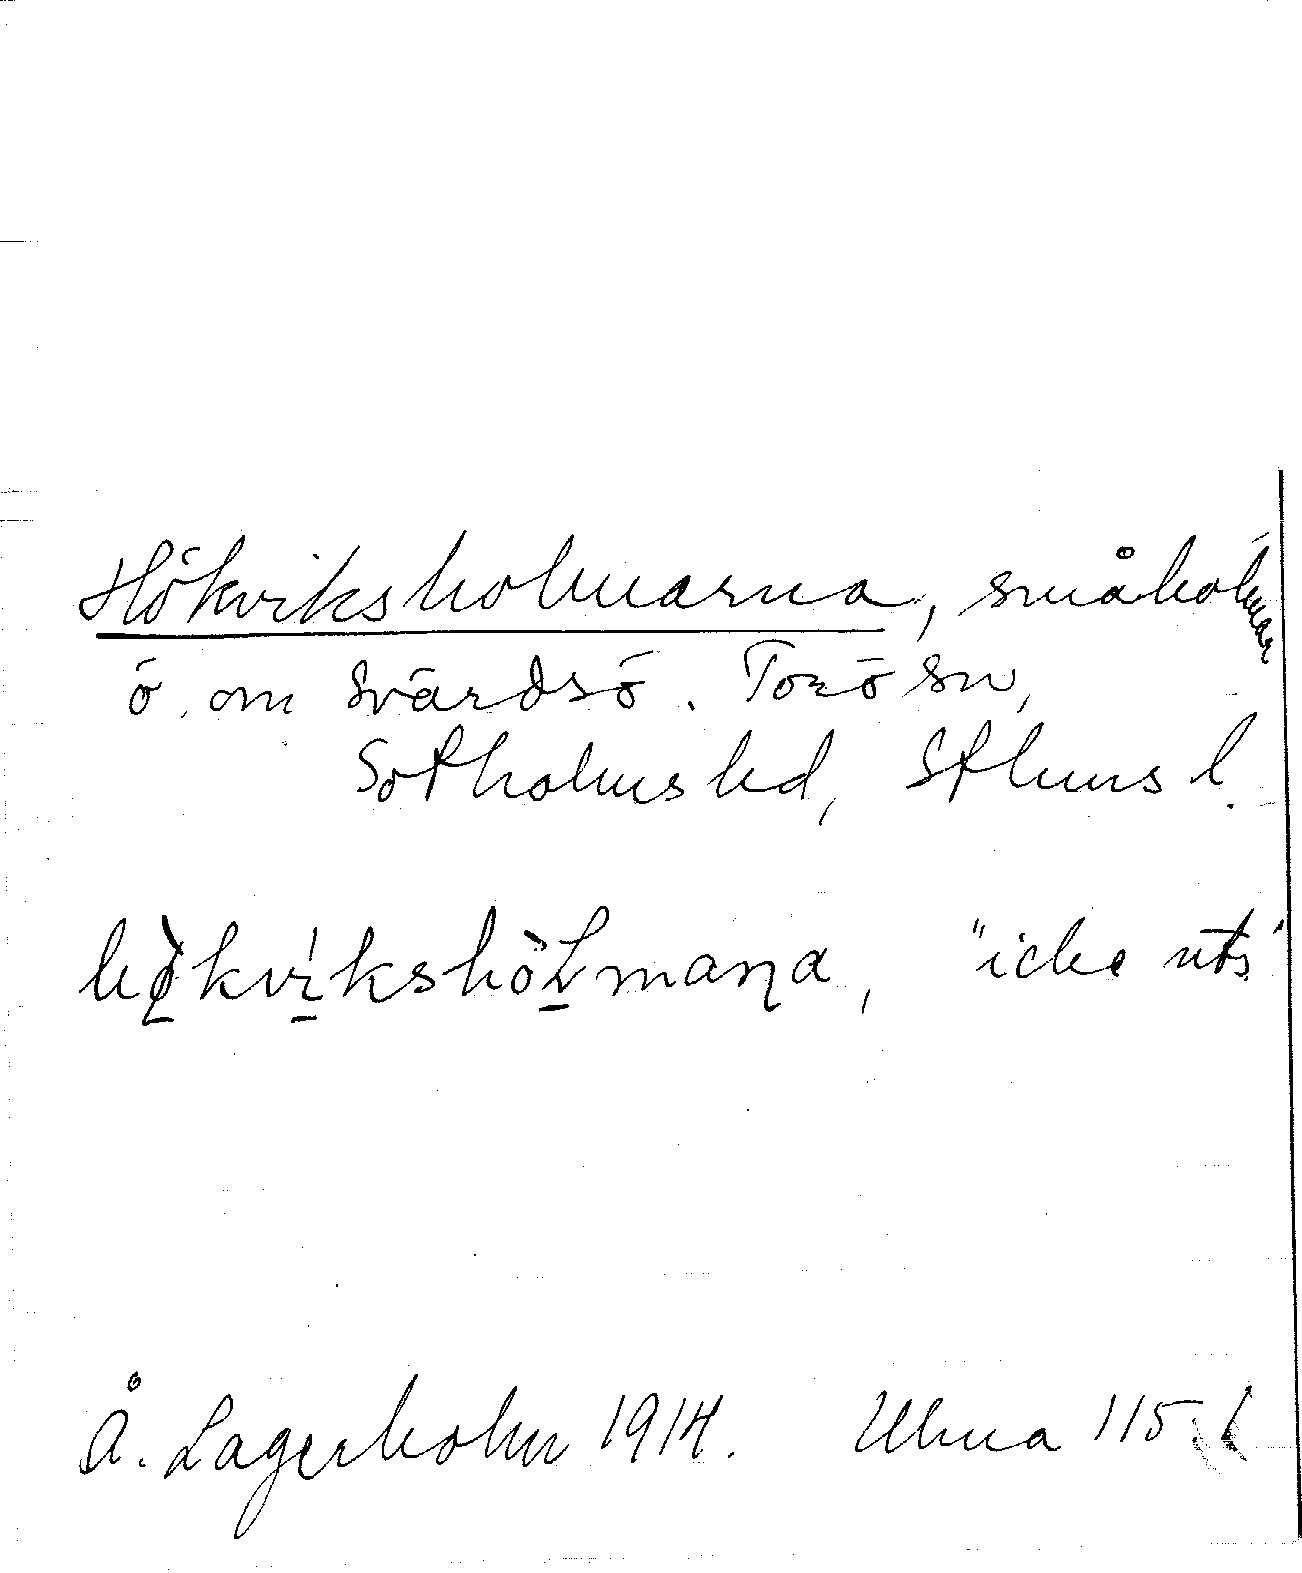 Hökviksholmarna, småholmar
ö. om Svärdsö. Torö sn,
Sotholms hd, Sthlms l.
hø̀kvíkshòLmaꞃa, "icke uts"
Å. Lagerholm 1914. Ulma 115: